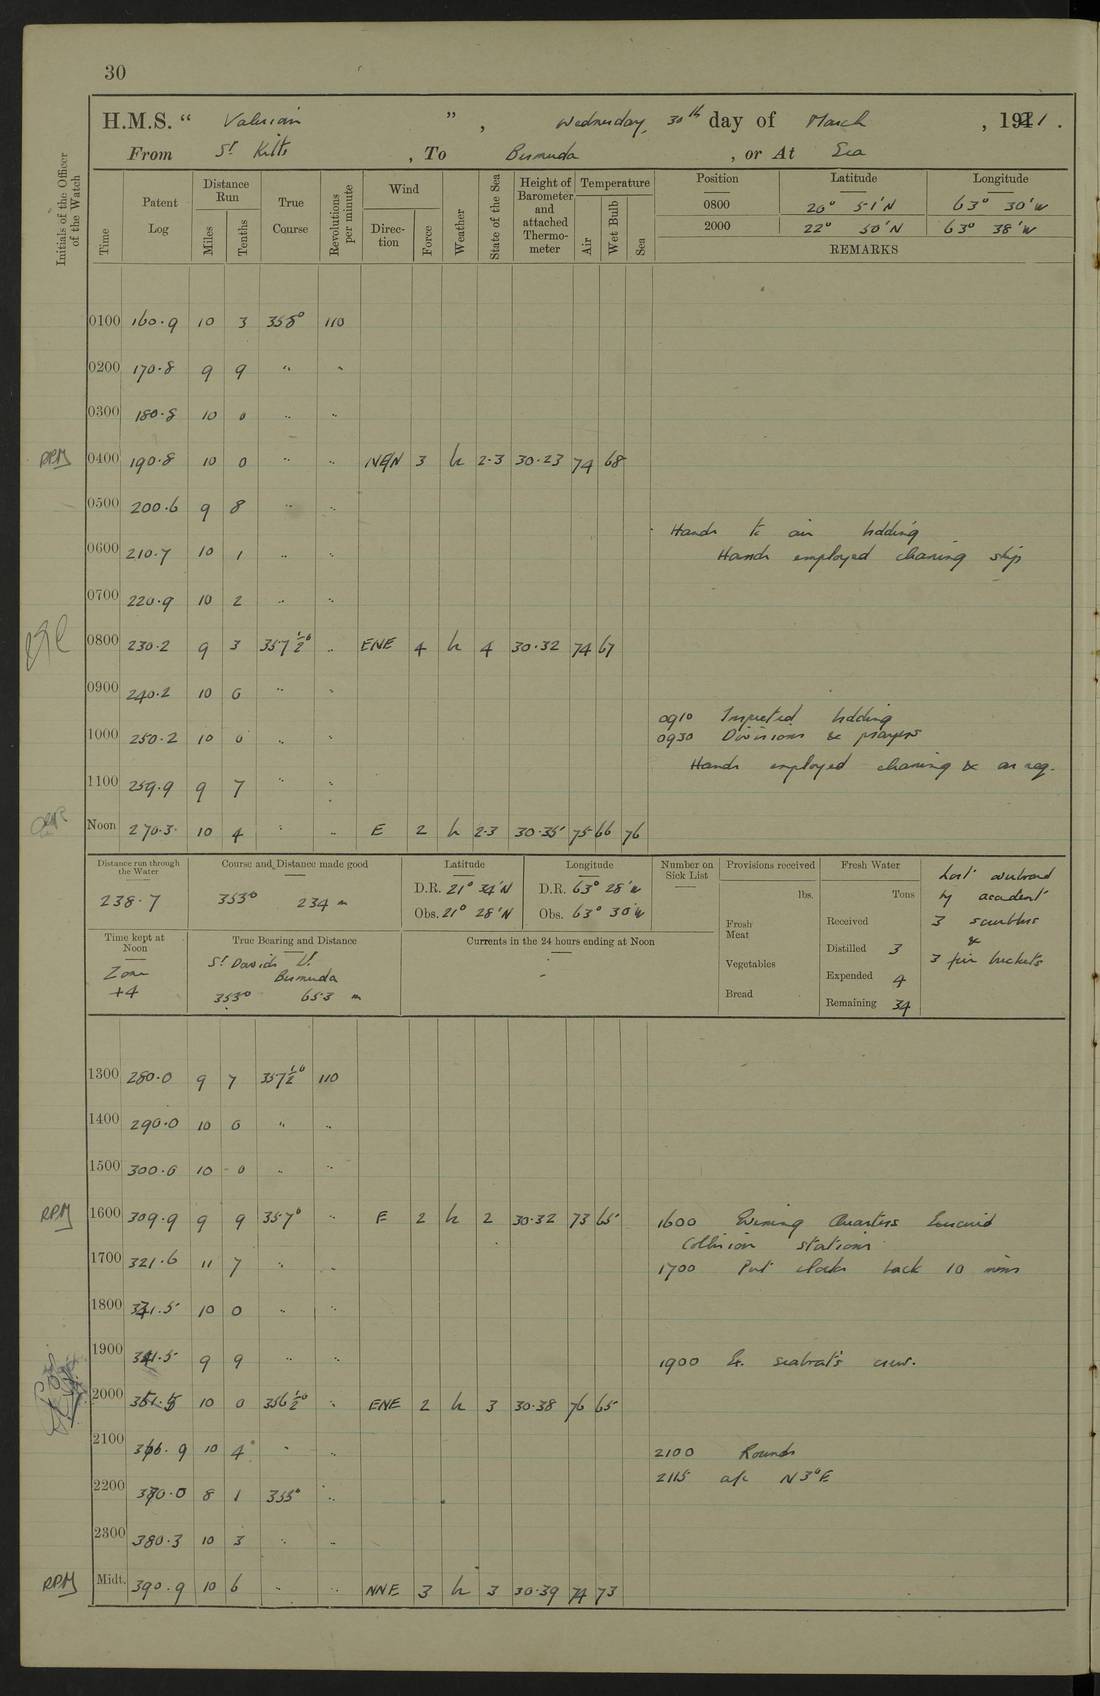 30
H.M.S. “ Valerian ” , Wednesday, 30th day of March , 1921 .
From St Kitts , To Bermuda , or At Sea
Initials of the Officer of the Watch
Time
Patent Log
Distance Run
Miles
Tenths
True Course
Revolutions per minute
Wind
Direction
Force
Weather
State of the Sea
Height of Barometer and attached Thermometer
Temperature
Air
Wet Bulb
Sea
Position Latitude Longitude
0800 20° 51'N 63° 30'W
2000 22° 50'N 63° 38'W
REMARKS
0100 160.9 10 3 358° 110
0200 170.8 9 9 " "
0300 180.8 10 0 " "
RPM 0400 190.8 10 0 " " NE/N 3 b 2-3 30.23 74 68
0500 200.6 9 8 " "
Hands to air bedding
0600 210.7 10 1 " " Hands employed cleaning ship
0700 220.9 10 2 " "
0800 230.2 9 3 357½° " ENE 4 b 4 30.32 74 67
0900 240.2 10 0 " "
0910 Inspected bedding
1000 250.2 10 0 " " 0930 Divisions & prayers
Hands employed cleaning & as req.
1100 259.9 9 7 " "
Noon 270.3 10 4 " " E 2 b 2-3 30.35 75 66 76
Distance run through the Water
238.7
Course and Distance made good
353° 234 m
Latitude
D.R. 21° 34'N
Obs. 21° 28'N
Longitude
D.R. 63° 28'W
Obs. 63° 30'W
Number on Sick List
Provisions received
lbs.
Fresh Meat
Vegetables
Bread
Fresh Water
Tons
Received
Distilled 3
Expended 4
Remaining 34
Lost overboard
by accident
3 scrubbers
&
3 fire buckets
Time kept at Noon
Zone
+4
True Bearing and Distance
St Davids Lt
Bermuda
353° 653 m
Currents in the 24 hours ending at Noon
-
1300 280.0 9 7 357½° 110
1400 290.0 10 0 " "
1500 300.0 10 - 0 " "
RPM 1600 309.9 9 9 357° " E 2 b 2 30.32 73 65 1600 Evening Quarters Exercised
Collision stations
1700 321.6 11 7 " " 1700 Put clocks back 10 mins
1800 331.5 10 0 " "
1900 341.5 9 9 " " 1900 Ex. seaboat's crew.
2000 351.5 10 0 356½° " ENE 2 b 3 30.38 76 65
2100 366.9 10 4 " " 2100 Rounds
2115 a/c N3°E
2200 370.0 8 1 355° "
2300 380.3 10 3 " "
RPM Midt. 390.9 10 6 " " NNE 3 b 3 30.39 74 73